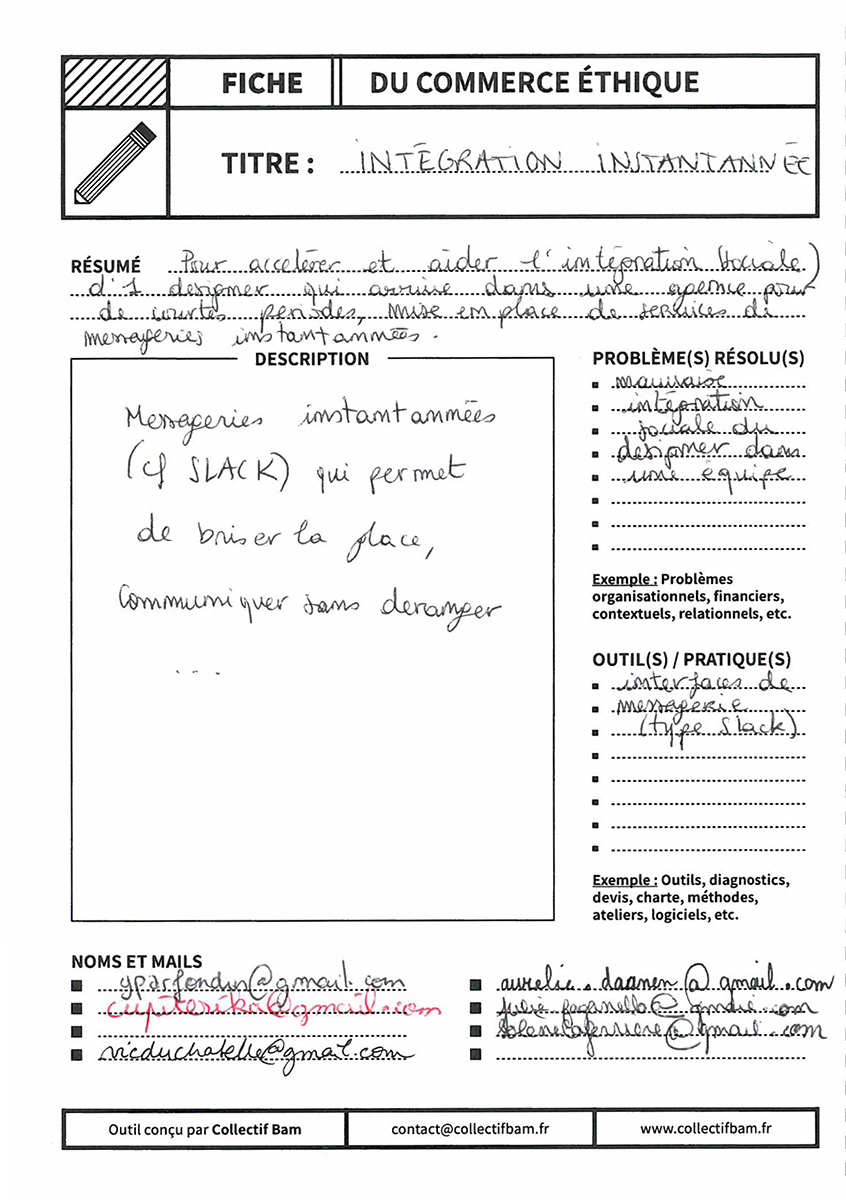 FICHE DU COMMERCE ÉTHIQUE
TITRE : INTÉGRATION INSTANTANNÉE
RÉSUMÉ Pour accelérer et aider l'intégration (sociale)
d'1 designer qui arrive dans une agence pour
de courtes periodes, mise en place de services di
messageries instantannées.
DESCRIPTION
Messageries instantannées
(cf SLACK) qui permet
de briser la place,
Communiquer sans deranger
...
PROBLÈME(S) RÉSOLU(S)
mauvaise
intégration
sociale du
designer dans
une équipe
Exemple : Problèmes
organisationnels, financiers,
contextuels, relationnels, etc.
OUTIL(S) / PRATIQUE(S)
interfaces de
messagerie
(type Slack)
Exemple : Outils, diagnostics,
devis, charte, méthodes,
ateliers, logiciels, etc.
NOMS ET MAILS
yparfondry@gmail.com
cupiterika@gmail.com
vicduchatelle@gmail.com
aurelie.daanen@gmail.com
@gmail.com
@gmail.com
Outil conçu par Collectif Bam
contact@collectifbam.fr
www.collectifbam.fr